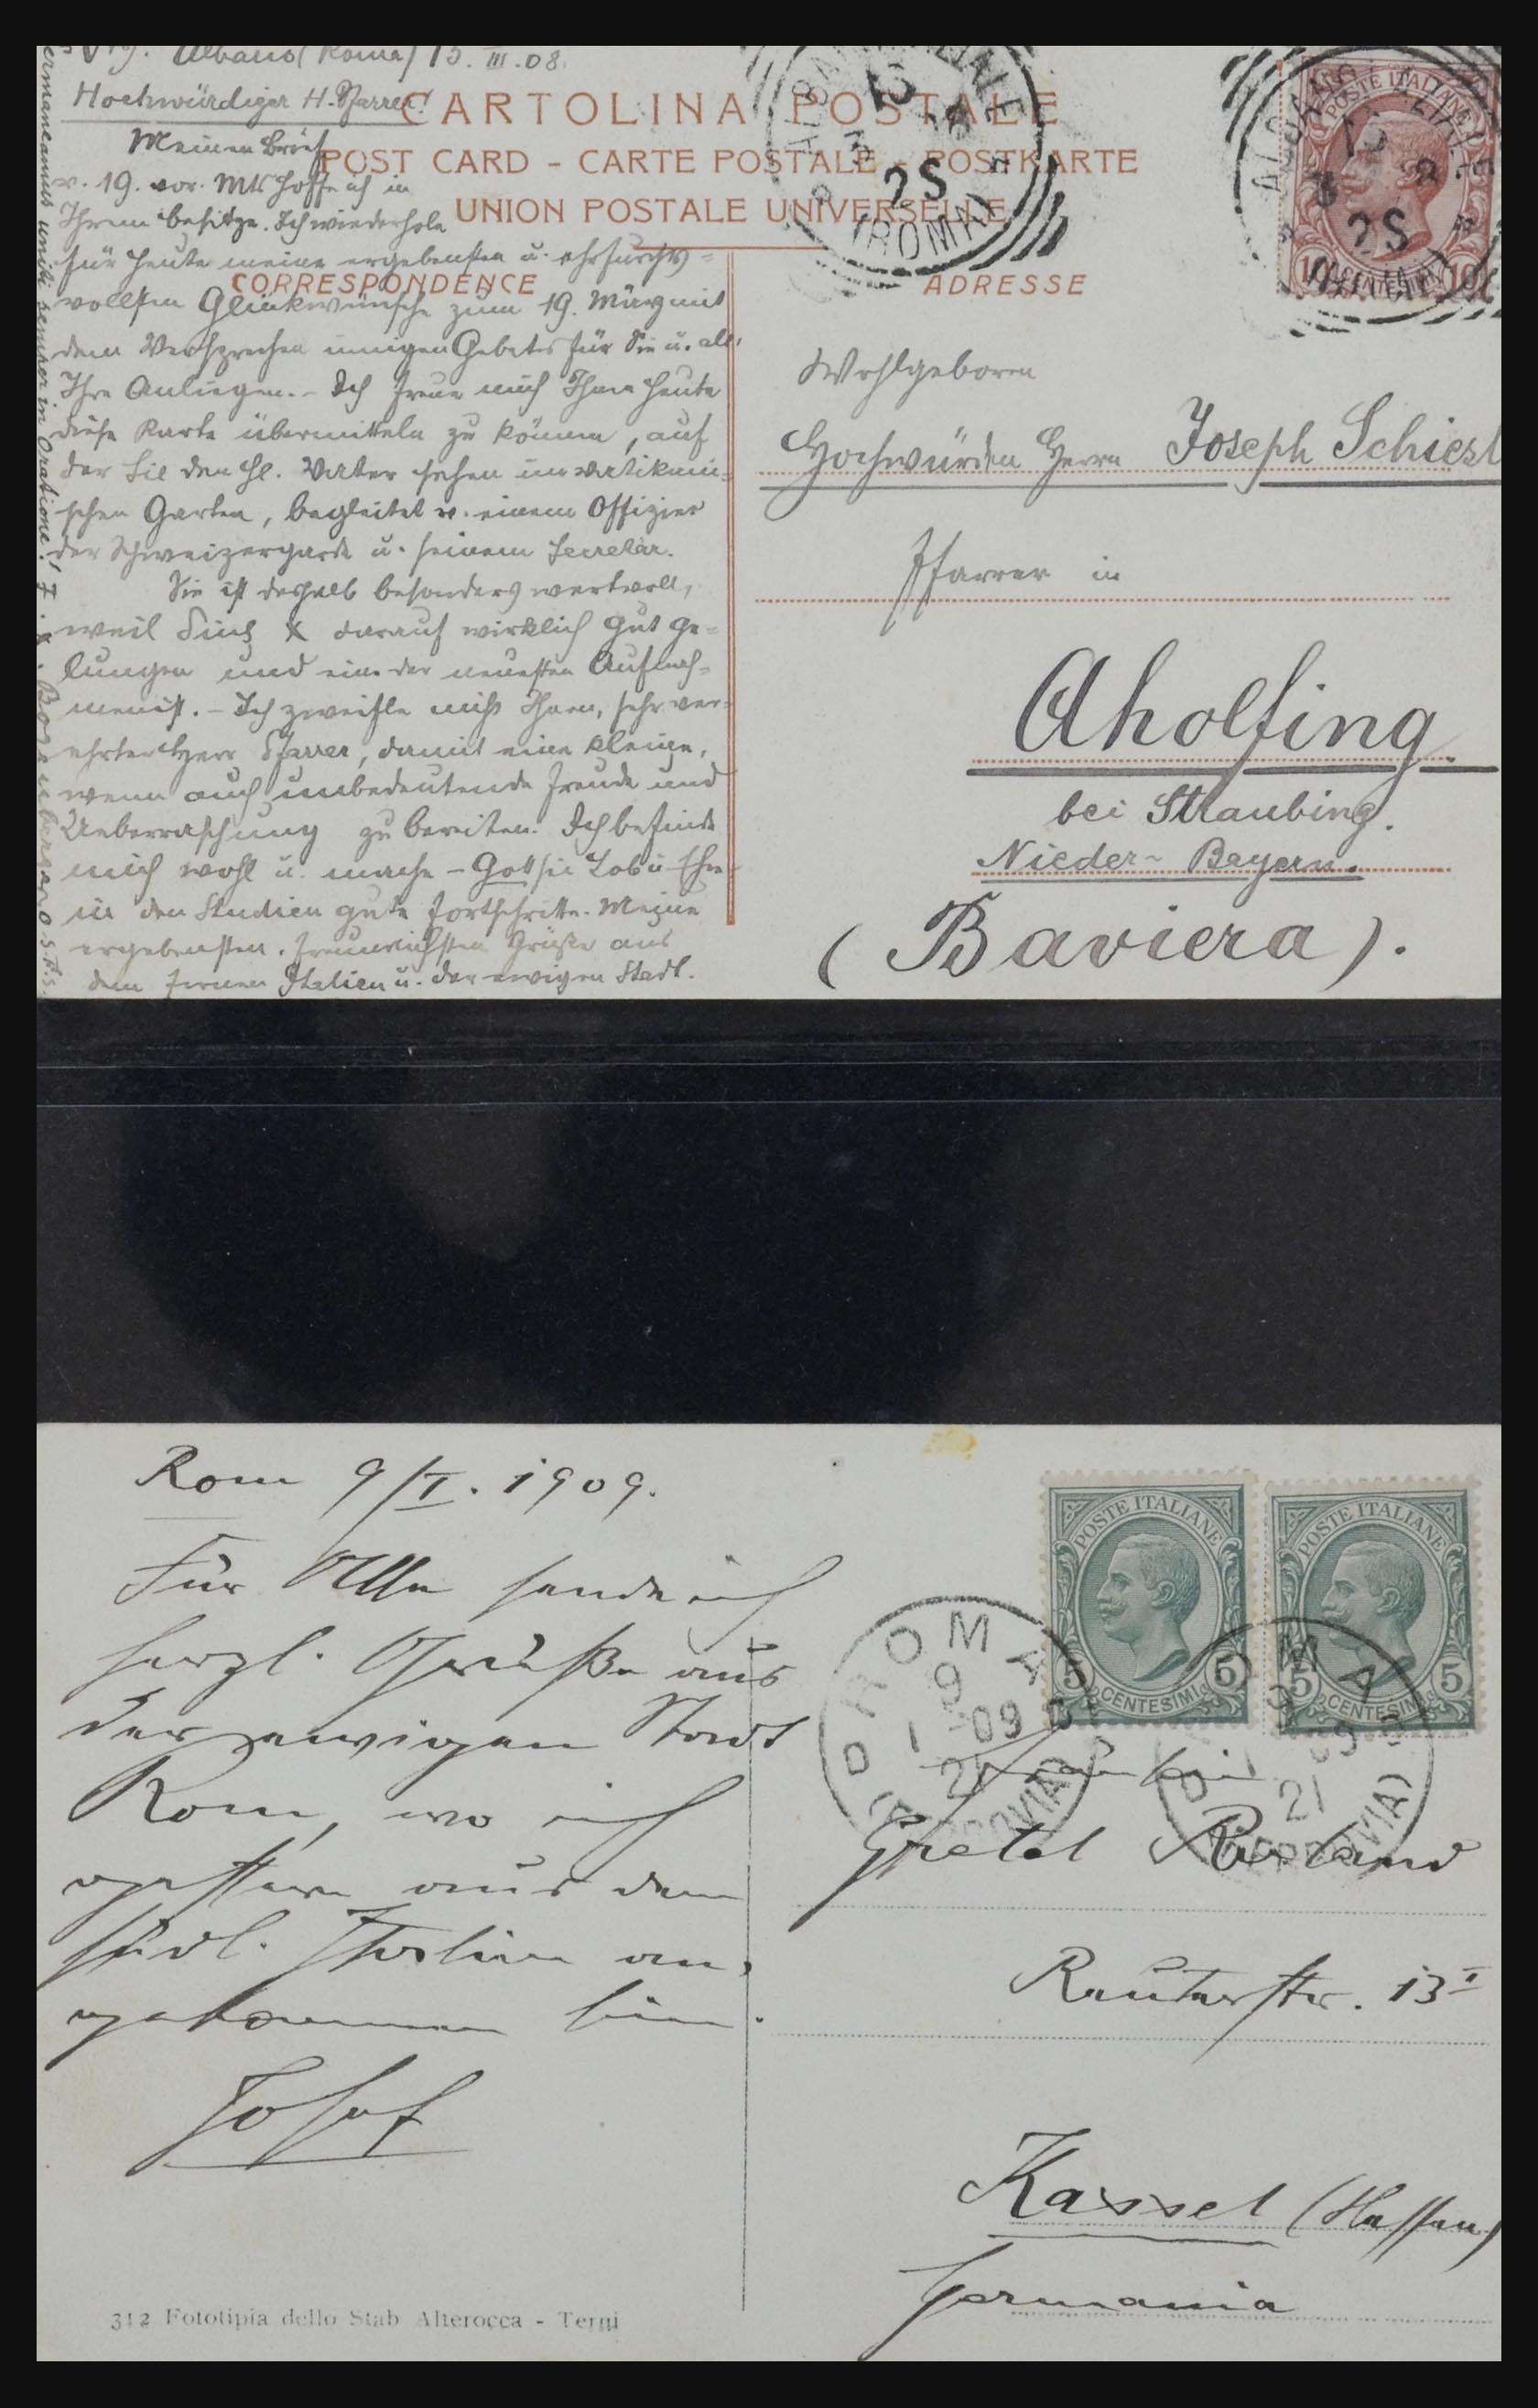 Albano (Roma) 15. III. 08.
Hochwürdiger H. Pfarrer!
Meinen Brief
v. 19. vor. Mts hoffe ich in
Ihrem Besitze. Ich wiederhole
für heute meine ergebensten u. ehrfurchts-
vollsten Glückwünsche zum 19. März mit
dem Versprechen innigen Gebetes für Sie u. all'
Ihre Anliegen. - Ich freue mich Ihnen heute
diese Karte übermitteln zu können, auf
der Sie den hl. Vater sehen im vatikani-
schen Garten, begleitet v. einem Offizier
der Schweizergarde u. seinem Secretär.
Sie ist deshalb besonders wertvoll,
weil Pius X darauf wirklich gut ge-
lungen und eine der neuesten Aufnah-
men ist. - Ich zweifle nicht Ihnen, sehr ver-
ehrter Herr Pfarrer, damit eine kleine,
wenn auch unbedeutende Freude und
Ueberraschung zu bereiten. Ich befinde
mich wohl u. mache - Gott sei Lob u. Ehre -
in den Studien gute Fortschritte. Meine
ergebensten, freundlichsten Grüße aus
dem fernen Italien u. der ewigen Stadt.
permaneamus uniti semper in Oratione!
CARTOLINA POSTALE
POST CARD - CARTE POSTALE - POSTKARTE
UNION POSTALE UNIVERSELLE
CORRESPONDENCE
ADRESSE
ALBANO LAZIALE
(ROMA)
2S
POSTE ITALIANE
10
10
ALBANO LAZIALE
2S
Wohlgeboren
Hochwürden Herrn Joseph Schiesl
Pfarrer in
Aholfing
bei Straubing.
Nieder- Bayern.
(Baviera).
Rom 9/I. 1909.
Für Alle sende ich
herzl. Grüße aus
der ewigen Stadt
Rom, wo ich
gestern aus dem
südl. Italien an-
gekommen bin.
Josef
312 Fototipia dello Stab Alterocca - Terni
POSTE ITALIANE
5
5
CENTESIMI
POSTE ITALIANE
5
5
CENTESIMI
ROMA
9
1 - 09
21
(FERROVIA)
ROMA
21
Fräulein
Gretel Ruhland
Reuterstr. 13 I
Kassel (Hessen)
Germania